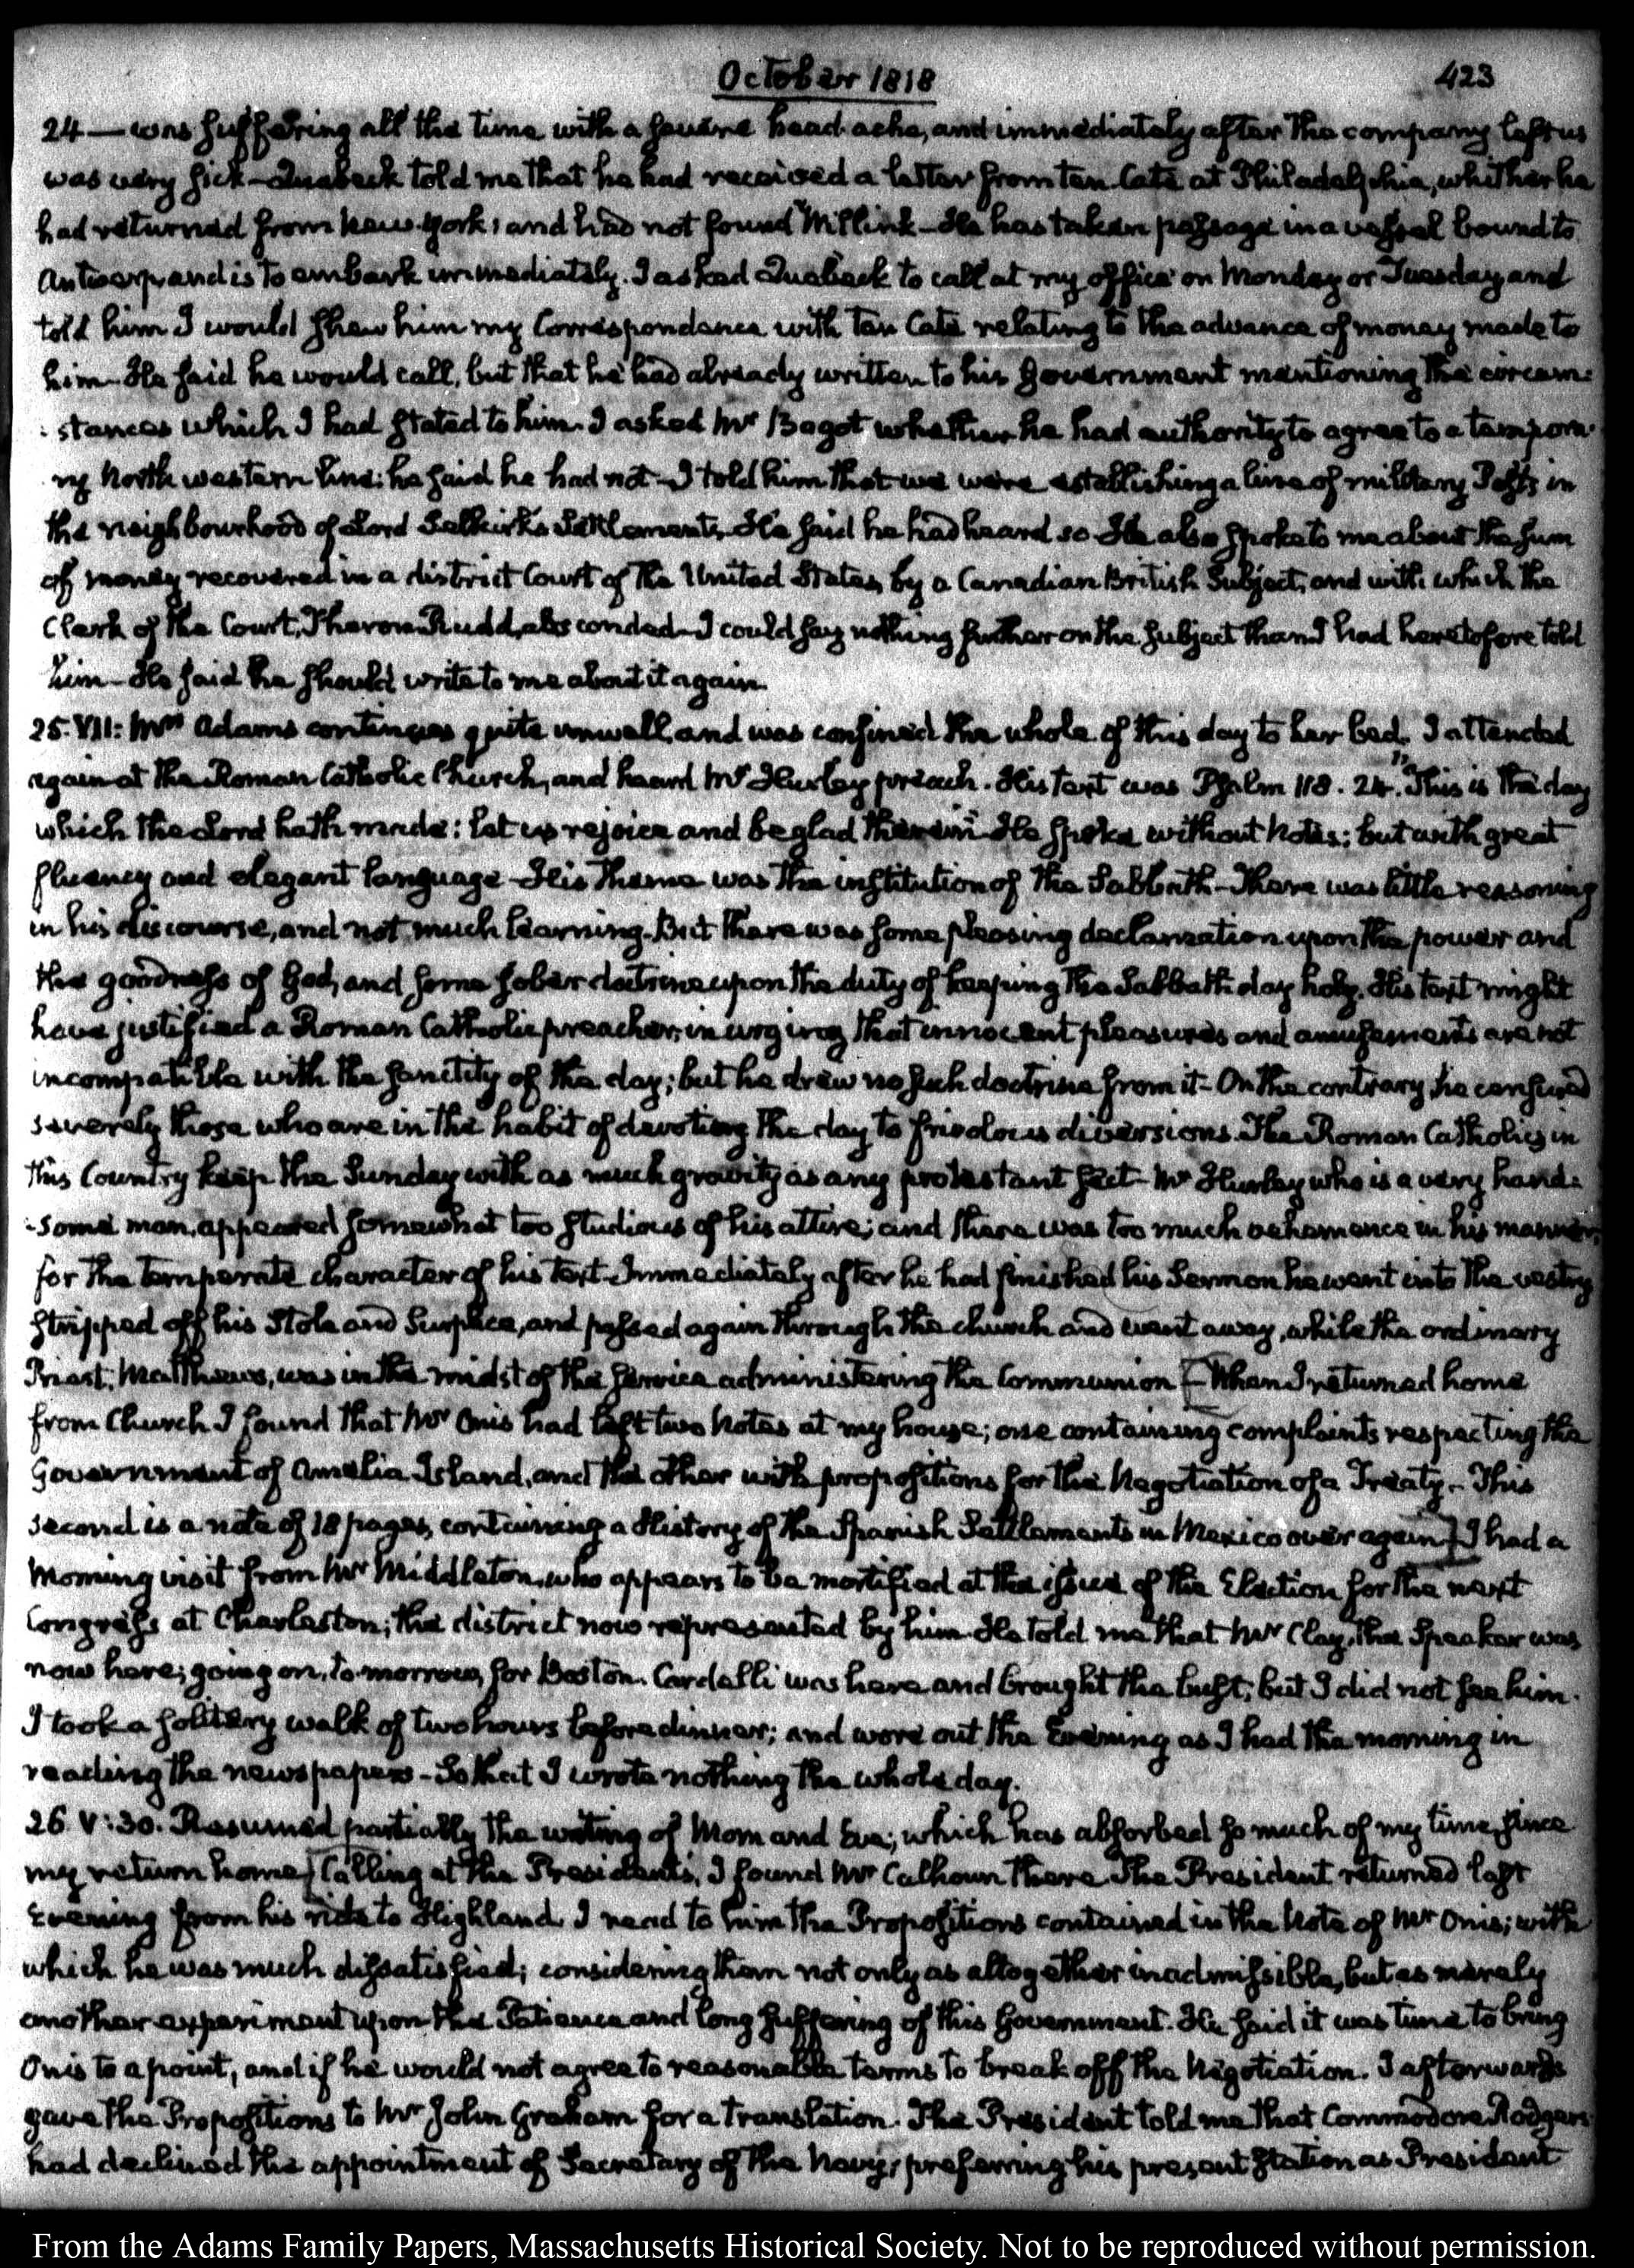 October 1818
423
24 — was suffering all the time with a severe head ache, and immediately after the company left us
was very sick — Quabeck told me that he had received a letter from ten Cate at Philadelphia, whither he
had returned from New-York, and had not found Millink — He has taken passage in a vessel bound to
Antwerp and is to embark immediately. I asked Quabeck to call at my office on Monday or Tuesday and
told him I would shew him my Correspondence with Ten Cate relating to the advance of money made to
him — He said he would call, but that he had already written to his Government mentioning the circum:
:stances which I had stated to him. I asked Mr Bagot whether he had authority to agree to a tempora-
ry North western line: he said he had not — I told him that we were establishing a line of military Posts in
the neighbourhood of Lord Selkirk's Settlements. He said he had heard so — He also spoke to me about the sum
of money recovered in a district Court of the United States, by a Canadian British Subject, and with which the
Clerk of the Court, Theron Rudd, absconded — I could say nothing further on the subject than I had heretofore told
him — He said he should write to me about it again.
25. VII: Mrs Adams continues quite unwell, and was confined the whole of this day to her bed. I attended
again at the Roman Catholic Church, and heard Mr Hurley preach. His text was Psalm 118. 24. "This is the day
which the Lord hath made: let us rejoice and be glad therein" — He spoke without Notes; but with great
fluency and elegant language — His Theme was the institution of the Sabbath — There was little reasoning
in his discourse, and not much learning. But there was some pleasing declamation upon the power and
the goodness of God, and some sober doctrine upon the duty of keeping the Sabbath day holy. His text might
have justified a Roman Catholic preacher, in urging that innocent pleasures and amusements are not
incompatible with the sanctity of the day; but he drew no such doctrine from it — On the contrary, he censured
severely those who are in the habit of devoting the day to frivolous diversions. The Roman Catholics in
this Country keep the Sunday with as much gravity as any protestant sect — Mr Hurley who is a very hand:
:some man, appeared somewhat too studious of his attire; and there was too much vehemence in his manner,
for the temperate character of his text — Immediately after he had finished his Sermon he went into the vestry
stripped off his Stole and Surplice, and passed again through the church and went away, while the ordinary
Priest, Matthews, was in the midst of the service administering the Communion [— When I returned home
from Church I found that Mr Onis had left two Notes at my house; one containing complaints respecting the
Government of Amelia Island, and the other with propositions for the Negotiation of a Treaty. — This
second is a note of 18 pages, containing a History of the Spanish Settlements in Mexico over again] I had a
morning visit from Mr Middleton, who appears to be mortified at the issue of the Election for the next
Congress at Charleston; the district now represented by him — He told me that Mr Clay, the Speaker was
now here; going on, to-morrow, for Boston. Cardelli was here and brought the bust, but I did not see him.
I took a solitary walk of two hours before dinner; and wore out the Evening as I had the morning in
reading the newspapers — So that I wrote nothing the whole day.
26 V:30. Resumed partially the writing of Morn and Eve; which has absorbed so much of my time since
my return home [Calling at the President's, I found Mr Calhoun there. The President returned last
Evening from his ride to Highland. I read to him the Propositions contained in the Note of Mr Onis; with
which he was much dissatisfied; considering them not only as altogether inadmissible, but as merely
another experiment upon the Patience and long suffering of this Government. He said it was time to bring
Onis to a point, and if he would not agree to reasonable terms to break off the Negotiation. I afterwards
gave the Propositions to Mr John Graham for a translation. The President told me that Commodore Rodgers
had declined the appointment of Secretary of the Navy, preferring his present station as President
From the Adams Family Papers, Massachusetts Historical Society. Not to be reproduced without permission.